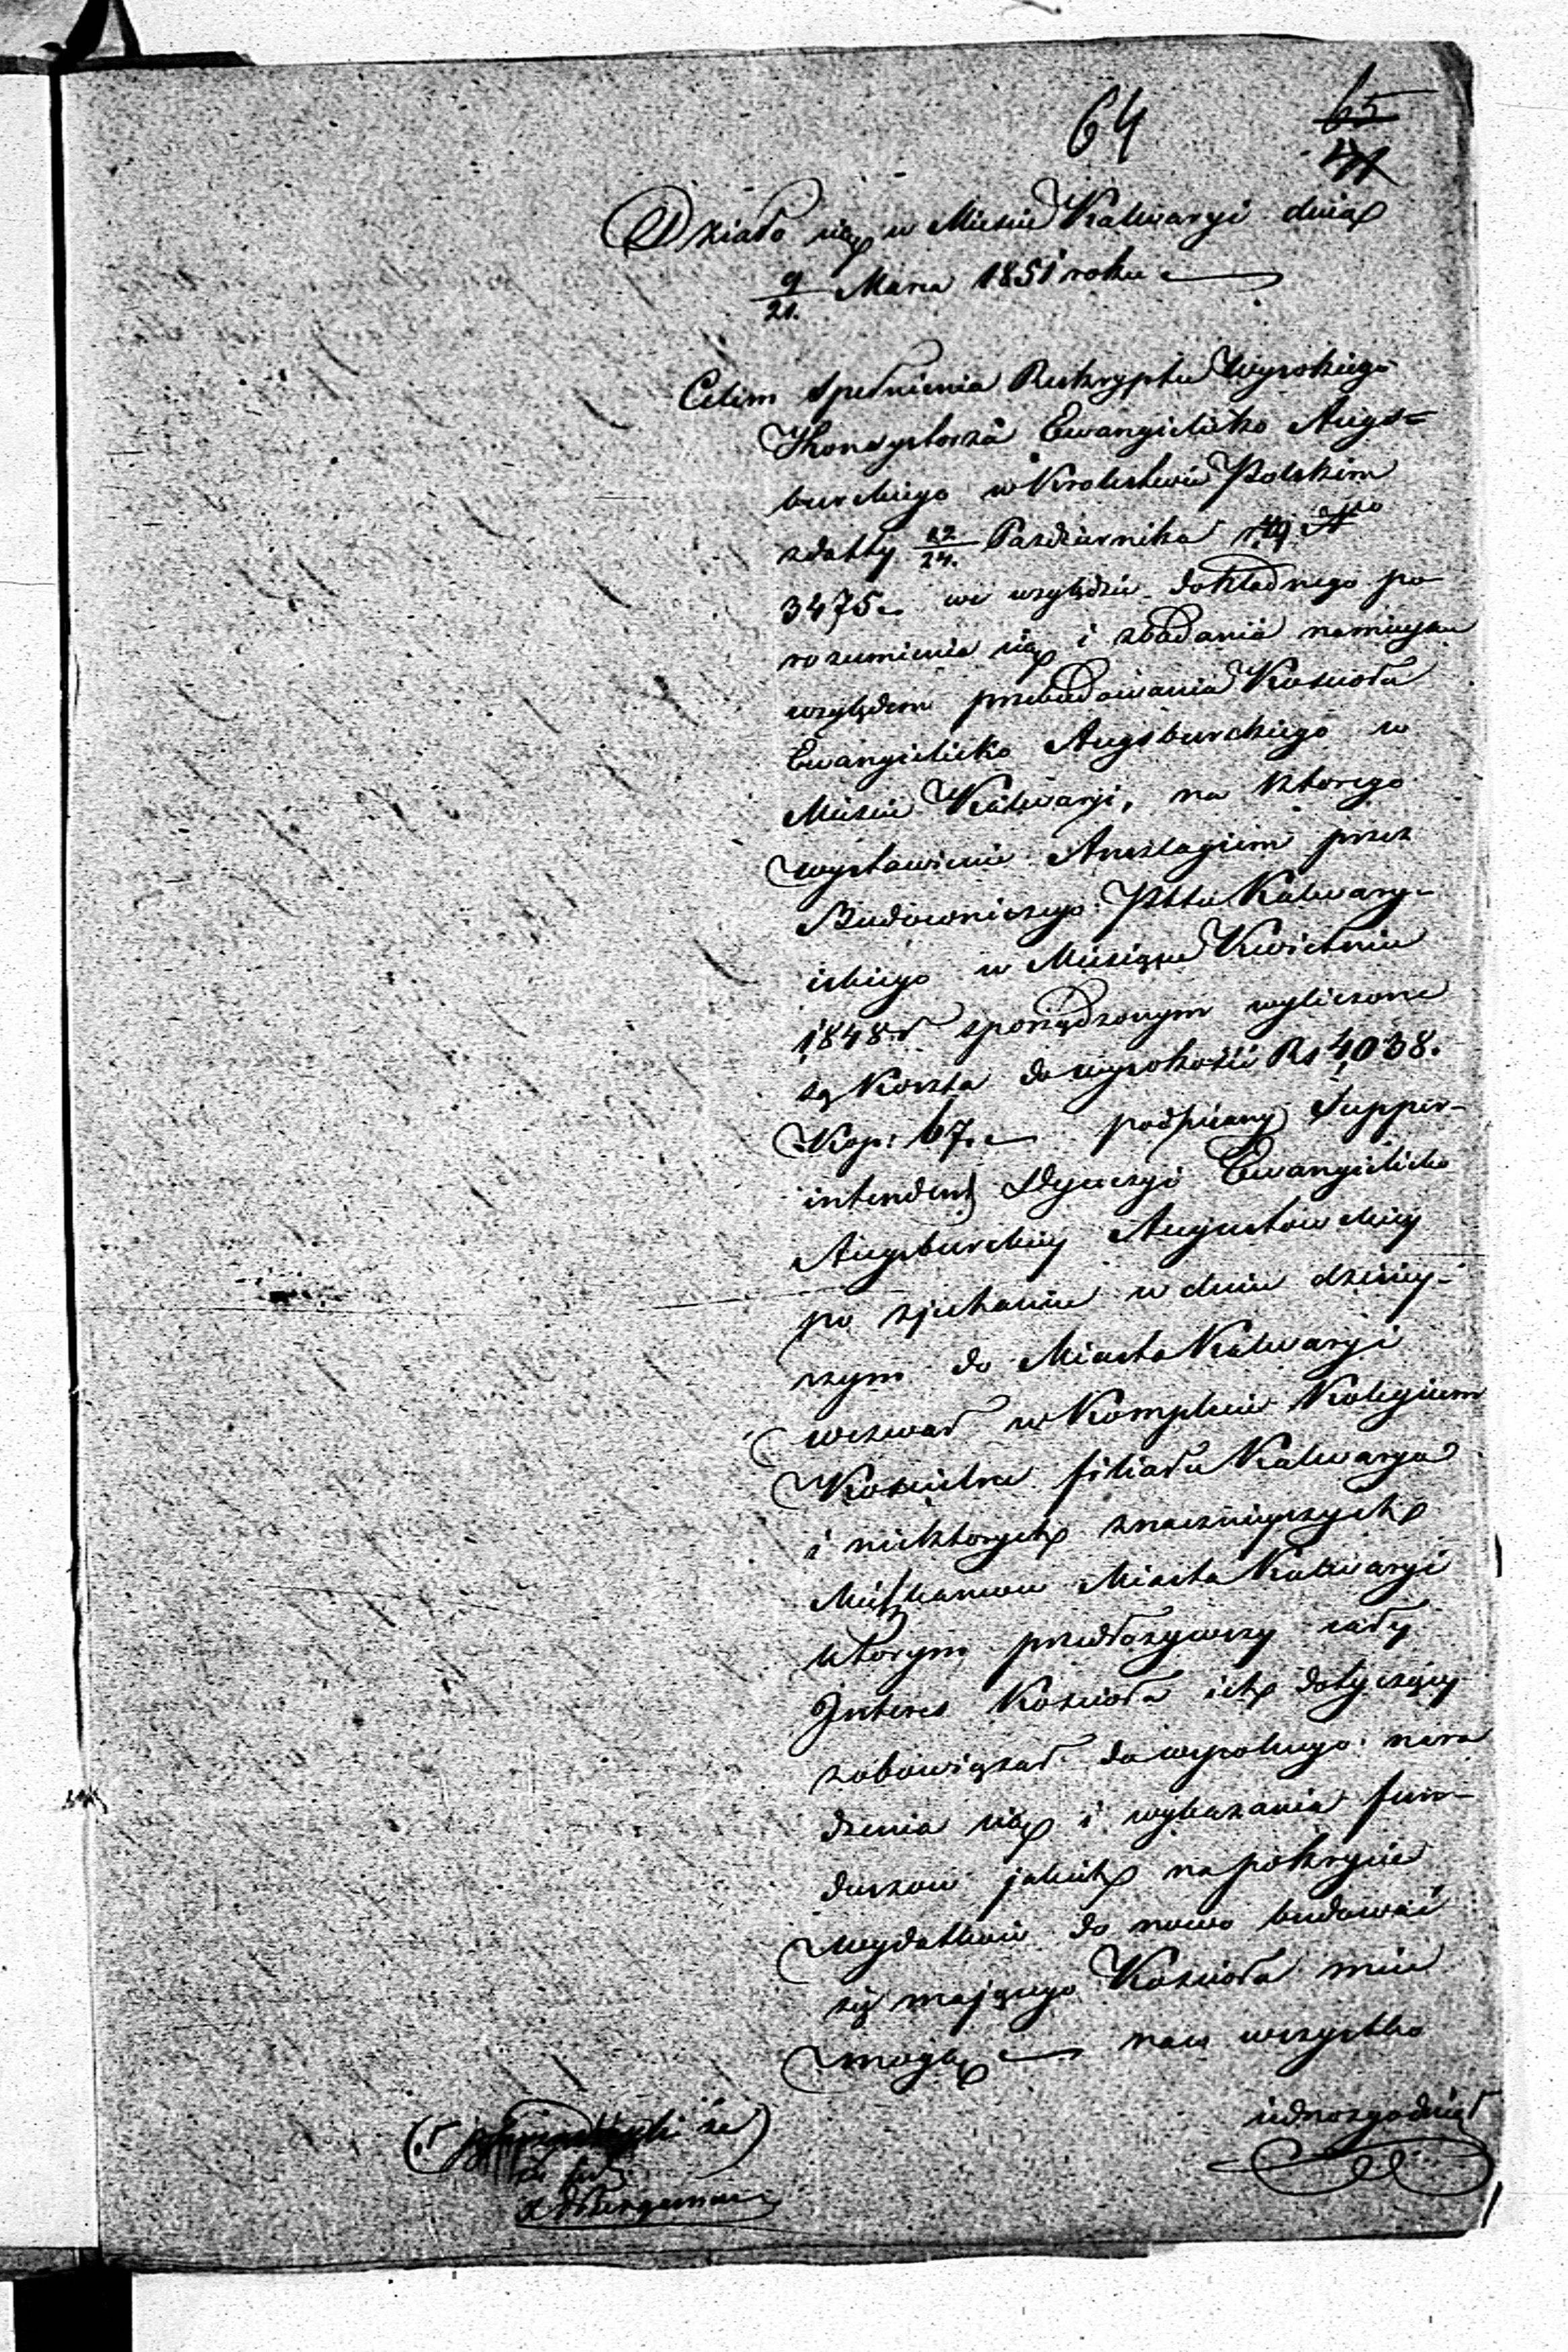 64 65
Działo się w Mieście Kalwaryi dnia
9/21. Marca 1851 roku
Celem spełnienia Reskryptu Wysokiego
Konsystorza Ewangielicko Augs=
burskiego w Krolestwie Polskim
z datty 12/24. Pazdziernika r. 49 No
3475. we względzie dokładnego po
rozumienia się i zbadania na miejscu
względem przebudowania Kościoła
Ewangielicko Augsburskiego w
Mieście Kalwaryi, na ktorego
wystawienie Anszlagiem przez
Budowniczego Pttu Kalwary-
iskiego w Miesiącu Kwietniu
1848 r sporządzonym wyliczone
są Koszta do wysokości Rs 4038.
Kop: 67. podpisany Supper-
intendent Dyecezyi Ewangielicko
Augsburskiej Augustowskiej
po zjechaniu w dniu dzisiej-
szym do Miasta Kalwaryi
wezwał w Komplecie Kolegium
Kościelne filiału Kalwarya
i niektorych znaczniejszych
Mieszkancow Miasta Kalwaryi
ktorym przedłożywszy cały
Interes Kościoła ich dotyczący
zobowiązał do wspolnego nara
dzenia się i wykazania fun-
duszow jakich na pokrycie
wydatkow do nowo budować
się mającego Kościoła mieć
mogą na co wszystko
jednozgodnie